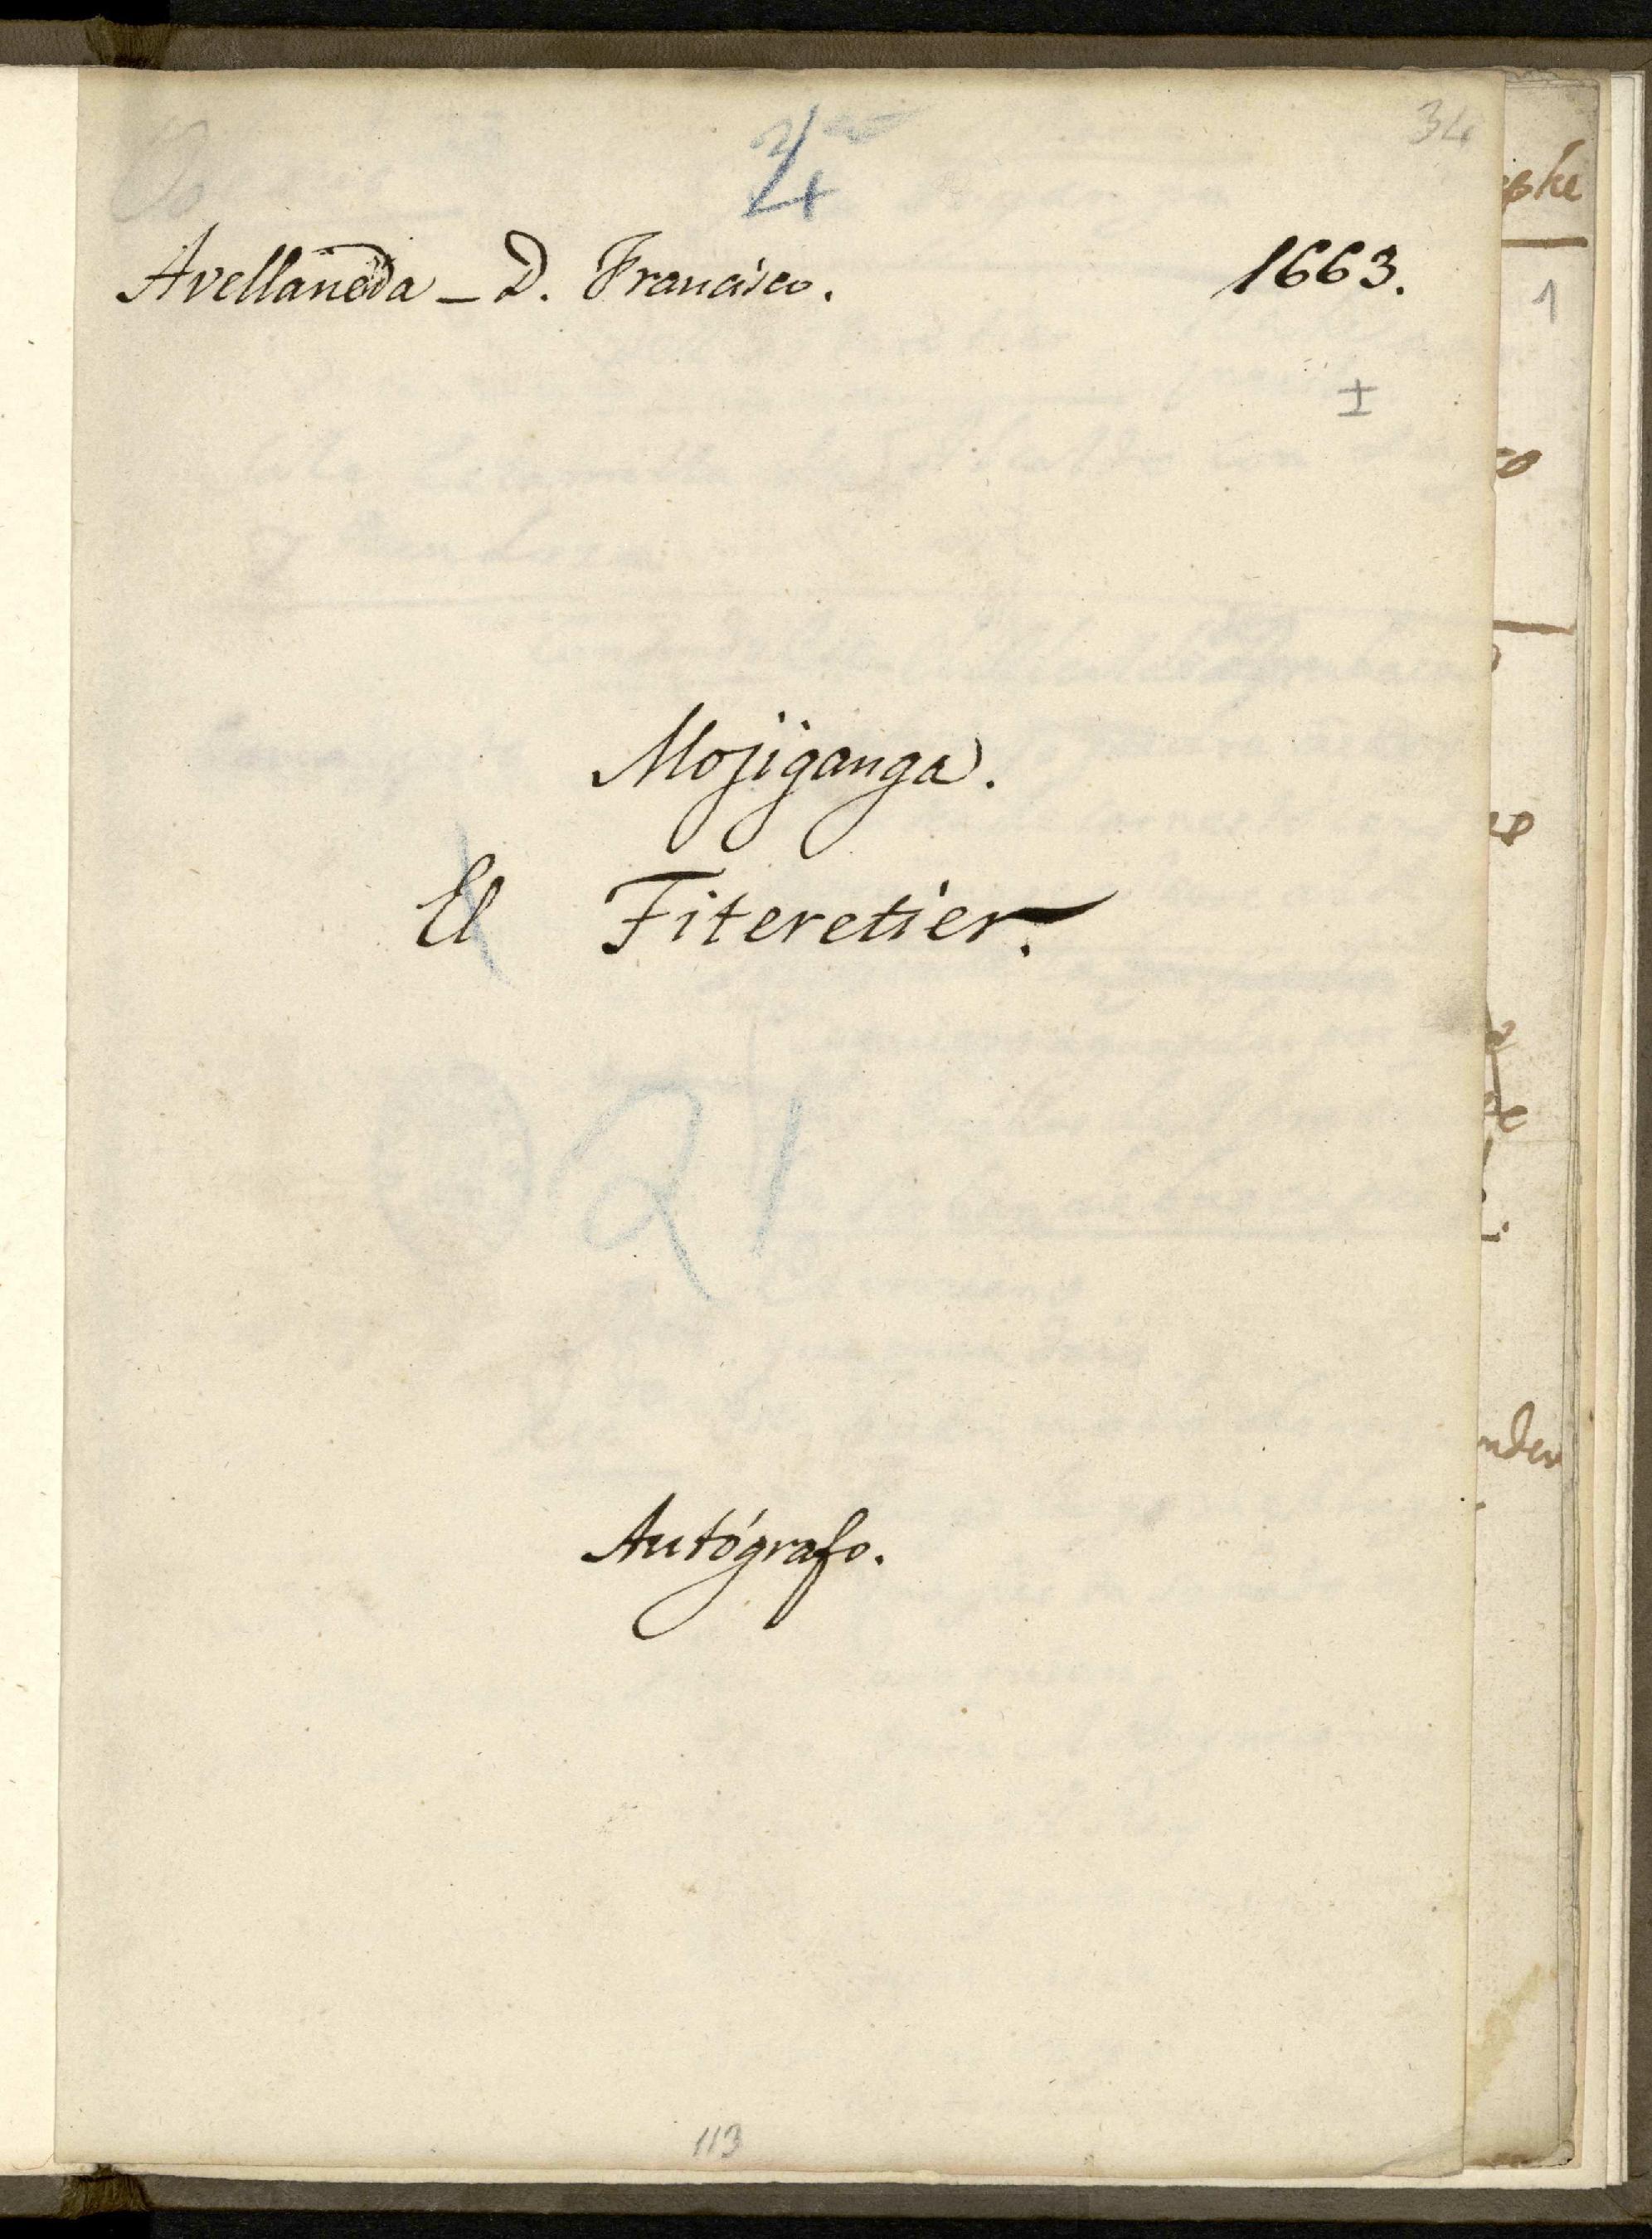 34
Avellaneda – D. Francisco. 1663.
1
Mojiganga.
El Fiteretier.
21
Autógrafo.
113